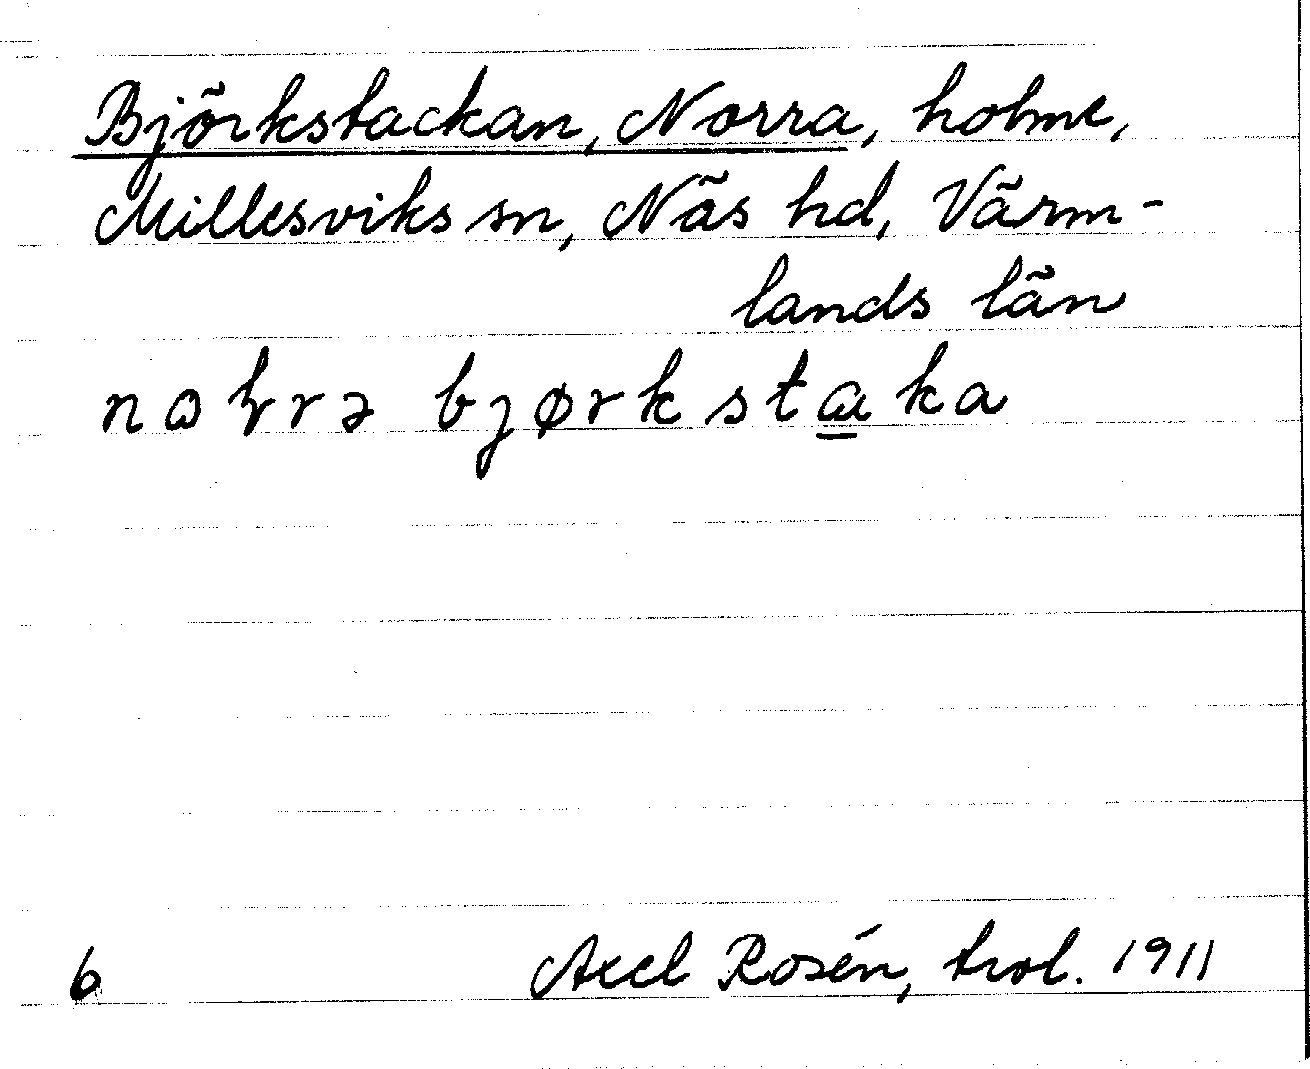 Björkstackan, Norra, holme,
Millesviks sn, Näs hd, Värm-
lands län
bjørkstaka
6 Axel Rosén, trol. 1911